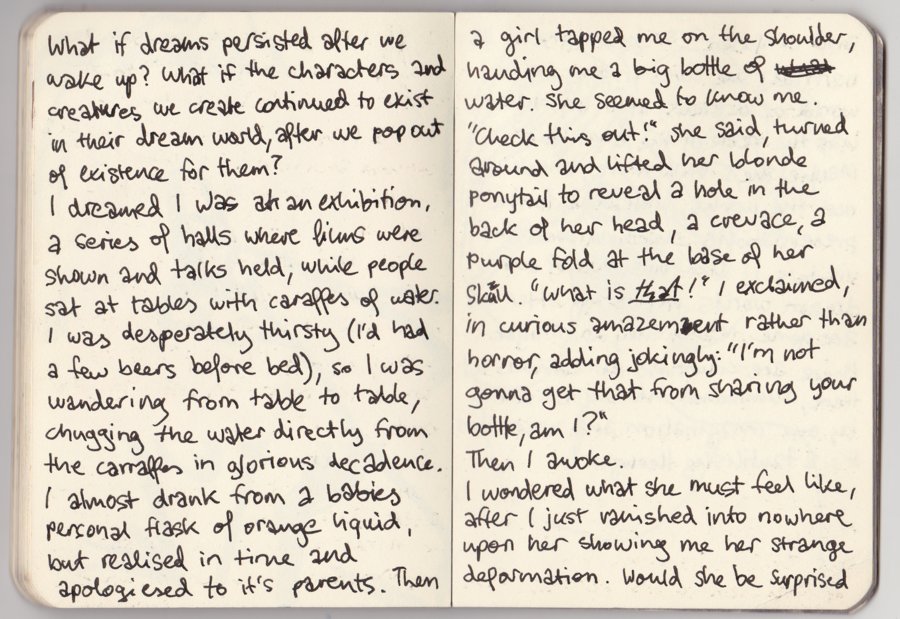 What if dreams persisted after we
wake up? What if the characters and
creatures we create continued to exist
in their dream world, after we pop out
of existence for them?
I dreamed I was at an exhibition,
a series of halls where films were
shown and talks held, while people
sat at tables with caraffes of water.
I was desperately thirsty (I'd had
a few beers before bed), so I was
wandering from table to table,
chugging the water directly from
the carraffes in glorious decadence.
I almost drank from a babies
personal flask of orange liquid,
but realised in time and
apologiesed to it's parents. Then
a girl tapped me on the shoulder,
handing me a big bottle of
water. She seemed to know me.
"Check this out!" she said, turned
around and lifted her blonde
ponytail to reveal a hole in the
back of her head, a crevace, a
purple fold at the base of her
skull. "What is that!" I exclaimed,
in curious amazement rather than
horror, adding jokingly: "I'm not
gonna get that from sharing your
bottle, am I?"
Then I awoke.
I wondered what she must feel like,
after I just vanished into nowhere
upon her showing me her strange
deformation. Would she be surprised